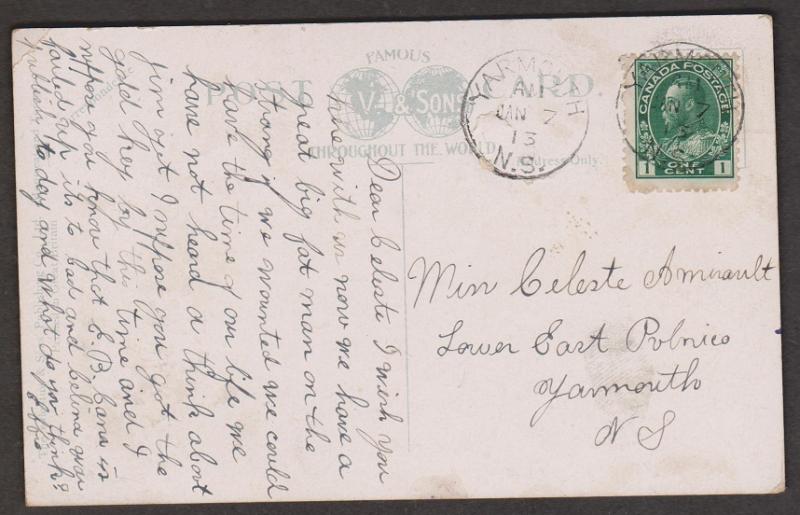 FAMOUS
POST CARD.
V. & SONS
THROUGHOUT THE WORLD
Address Only.
YARMOUTH
AM
JAN 7
13
N.S.
CANADA POSTAGE
ONE CENT
1 1
Dear Celeste I wish you
were with us now we have a
great big fat man on the
string if we wounted we could
have the time of our life we
have not heard a think about
Jim yet I suppose you got the
gold key by this time and I
suppose you know that E. B. Cana is
failed up its to bad and Celina was
publish to day and what do you think?
Effie
Miss Celeste Amirault
Lower East Pubnico
Yarmouth
N S